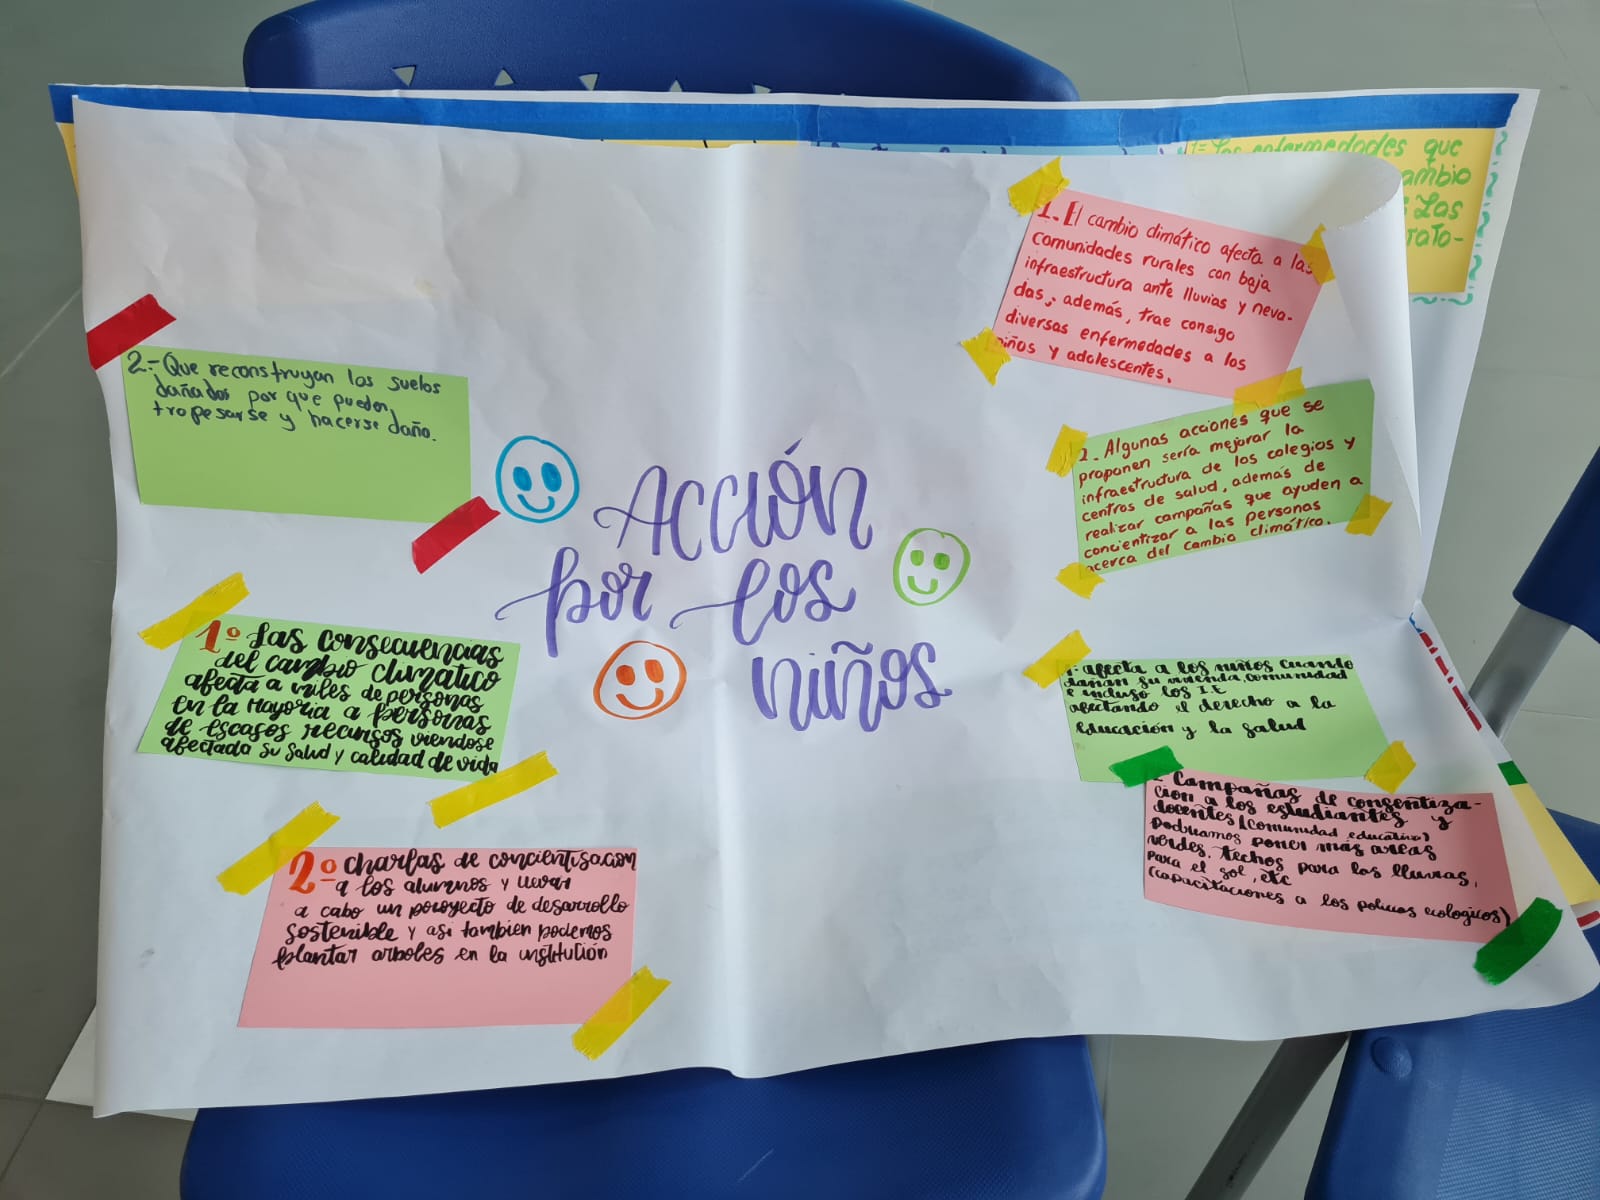 Acción
por los
niños
2.- Que reconstruyan los suelos
dañados por que pueden
tropesarse y hacerse daño.
1º Las consecuencias
del cambio climático
afecta a miles de personas
en la mayoria a personas
de escasos recursos viendose
afectada su salud y calidad de vida
2º charlas de concientisacion
a los alumnos y llevar
a cabo un poroyecto de desarrollo
sostenible y asi tambien podemos
plantar arboles en la institución
1.- El cambio climático afecta a las
comunidades rurales con baja
infraestructura ante lluvias y neva-
das, además, trae consigo
diversas enfermedades a los
niños y adolescentes.
2.- Algunas acciones que se
proponen sería mejorar la
infraestructura de los colegios y
centros de salud, además de
realizar campañas que ayuden a
concientizar a las personas
acerca del cambio climático.
1: afecta a los niños cuando
dañan su vivienda, comunidad
e incluso los I.E
afectando el derecho a la
Educación y la salud
Campañas de consentiza-
cion a los estudiantes y
docentes (comunidad educativa)
Podriamos poner más areas
verdes, techos para las lluvias,
para el sol, etc
(capacitaciones a los policias ecologicos)
1= Las enfermedades que
ambio
Las
rato-